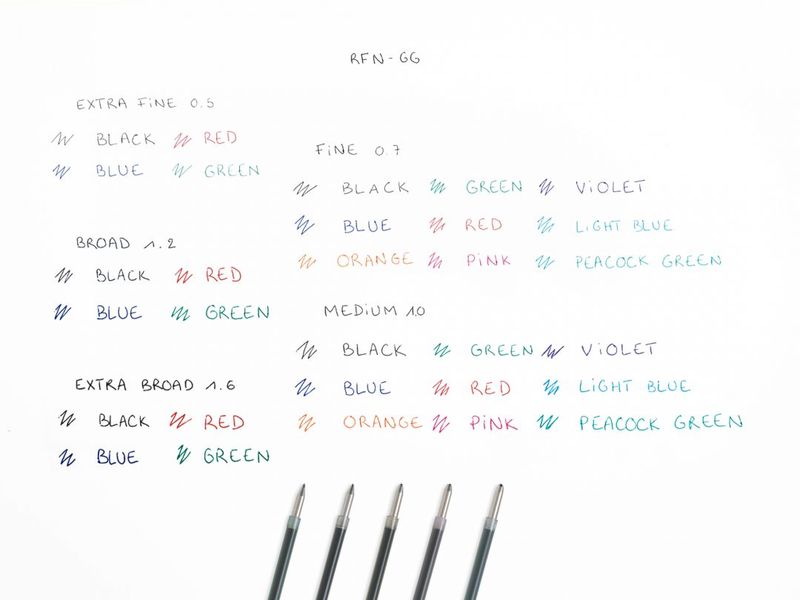 RFN-GG
EXTRA FiNE 0.5
BLACK RED
BLUE GREEN
BROAD 1.2
BLACK RED
BLUE GREEN
EXTRA BROAD 1.6
BLACK RED
BLUE GREEN
FiNE 0.7
BLACK GREEN ViOLET
BLUE RED LiGHT BLUE
ORANGE PiNK PEACOCK GREEN
MEDiUM 1.0
BLACK GREEN ViOLET
BLUE RED LiGHT BLUE
ORANGE PiNK PEACOCK GREEN